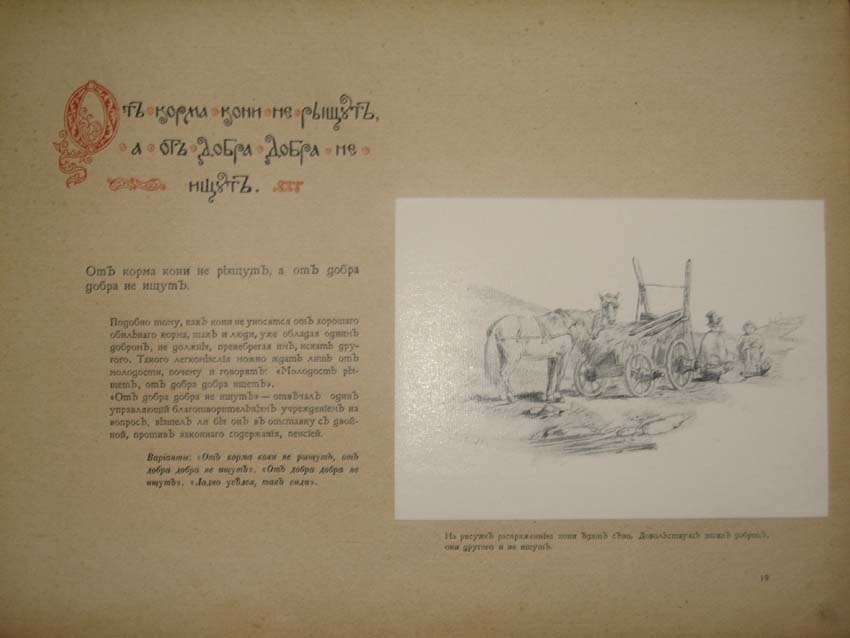 Отъ корма кони не рыщутъ,
а отъ добра добра не
ищутъ.
Отъ корма кони не рыщутъ, а отъ добра
добра не ищутъ.
Подобно тому, какъ кони не уносятся отъ хорошаго
обильнаго корма, такъ и люди, уже обладая однимъ
добромъ, не должны, пренебрегая имъ, искать дру-
гого. Такого легкомыслія можно ждать лишь отъ
молодости, почему и говорятъ: «Молодость ры-
щетъ, отъ добра добра ищетъ».
«Отъ добра добра не ищутъ» — отвѣчалъ одинъ
управляющій благотворительнымъ учрежденіемъ на
вопросъ, вышелъ ли бы онъ въ отставку съ двой-
ной, противъ законнаго содержанія, пенсіей.
Варіанты: «Отъ корма кони не рыщутъ, отъ
добра добра не ищутъ». «Отъ добра добра не
ищутъ». «Ладно усѣлся, такъ сиди».
На рисункѣ распряженныя кони ѣдятъ сѣно. Довольствуясь этимъ добромъ,
они другого и не ищутъ.
19